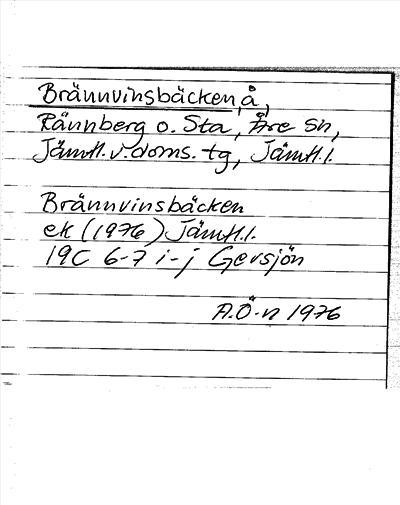 Brännvinsbäcken, å,
Rännberg o. Sta, Åre sn,
Jämtl. v. doms. tg, Jämtl. l.
Brännvinsbäcken
ek (1976) Jämtl. l.
19C 6-7 i-j Gevsjön
A.Ö-n 1976